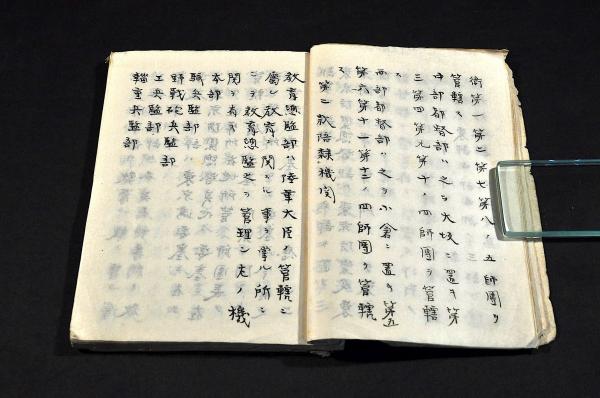 衛第一第二第七第八ノ五師團ヲ
管轄ス
中部都督部ハ之ヲ大坂ニ置キ第
三第四第九第十ノ四師團ヲ管轄
ス
西部都督部ハ之ヲ小倉ニ置キ第五
第六第十一第十二ノ四師團ヲ管轄
ス
第二款 隷機関
教育總監部ハ陸軍大臣ノ管轄ニ
屬シ教育ニ関スル事ヲ掌ル所ニ
シテ教育總監之ヲ管理シ左ノ機
関ヲ有ス
本部
騎兵監部
野戰砲兵監部
工兵監部
輜重兵監部